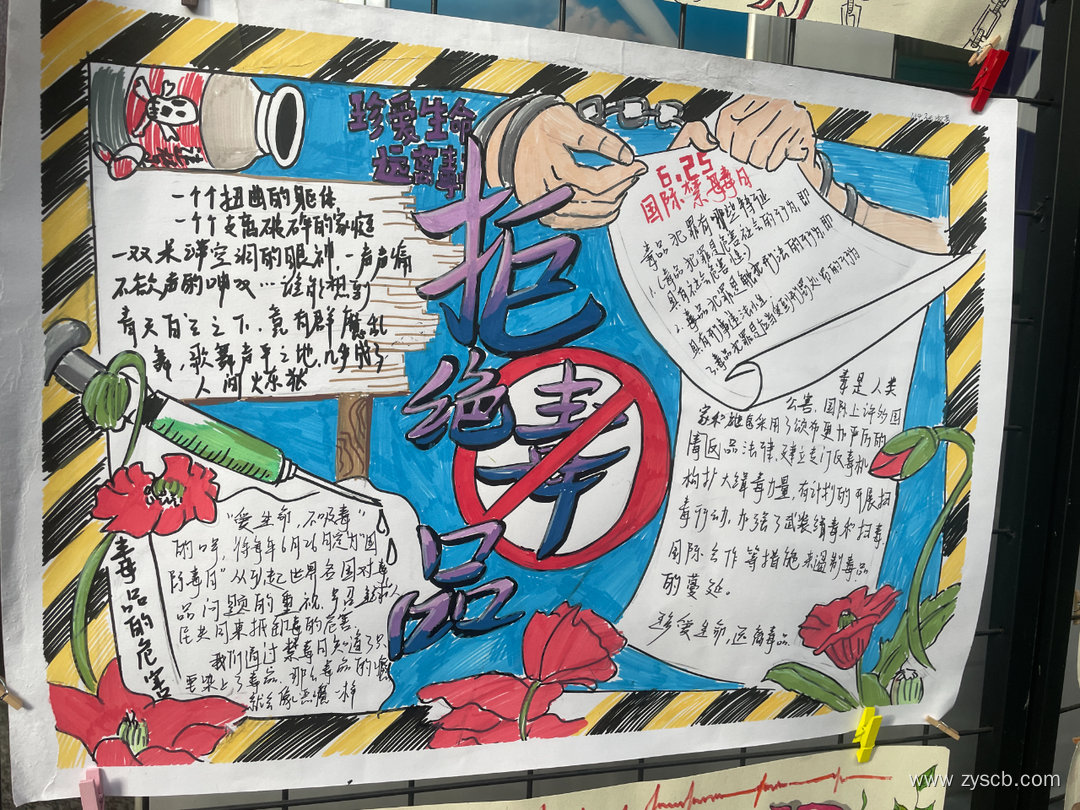 珍爱生命
远离毒
拒绝毒品
一个个扭曲的躯体
一个个支离破碎的家庭
一双木滞空洞的眼神,一声声痛
不欲声的呻吟…谁能想到
青天白云之下,竟有群魔乱
舞,歌舞升平之地,几乎成了
人间炼狱
6.25
国际禁毒日
毒品犯罪有哪些特征
1.(毒品犯罪是危害社会的行为,即
具有社会危害性)
2.毒品犯罪是触犯刑法的行为即
具有刑事违法性
3.毒品犯罪是应当受到刑罚处罚的行为
毒是人类
公害,国际上许多国
家和地区采用了颁布更加严厉的
品法律,建立专门反毒机
构扩大缉毒力量,有计划的开展扫
毒行动,加强了武装缉毒和扫毒
国际合作等措施来遏制毒品
的蔓延。
珍爱生命,远离毒品
毒品的危害
"爱生命,不吸毒"
的哗,将每年6月26日定为"国
际毒日"从引起世界各国对毒
品问题的重视,号召全球人
民共同来抵御毒的危害.
我们通过禁毒日知道了只
要染上了毒品,那么毒品的
就会像恶魔一样
www.zyscb.com